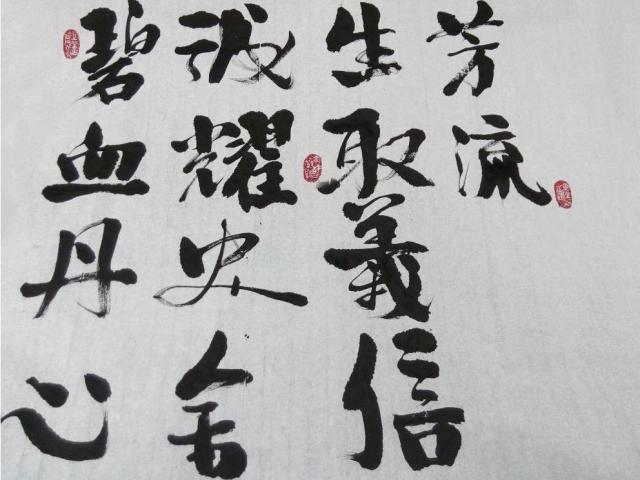 碧血丹心
诚耀史舍
生取義信
芳流